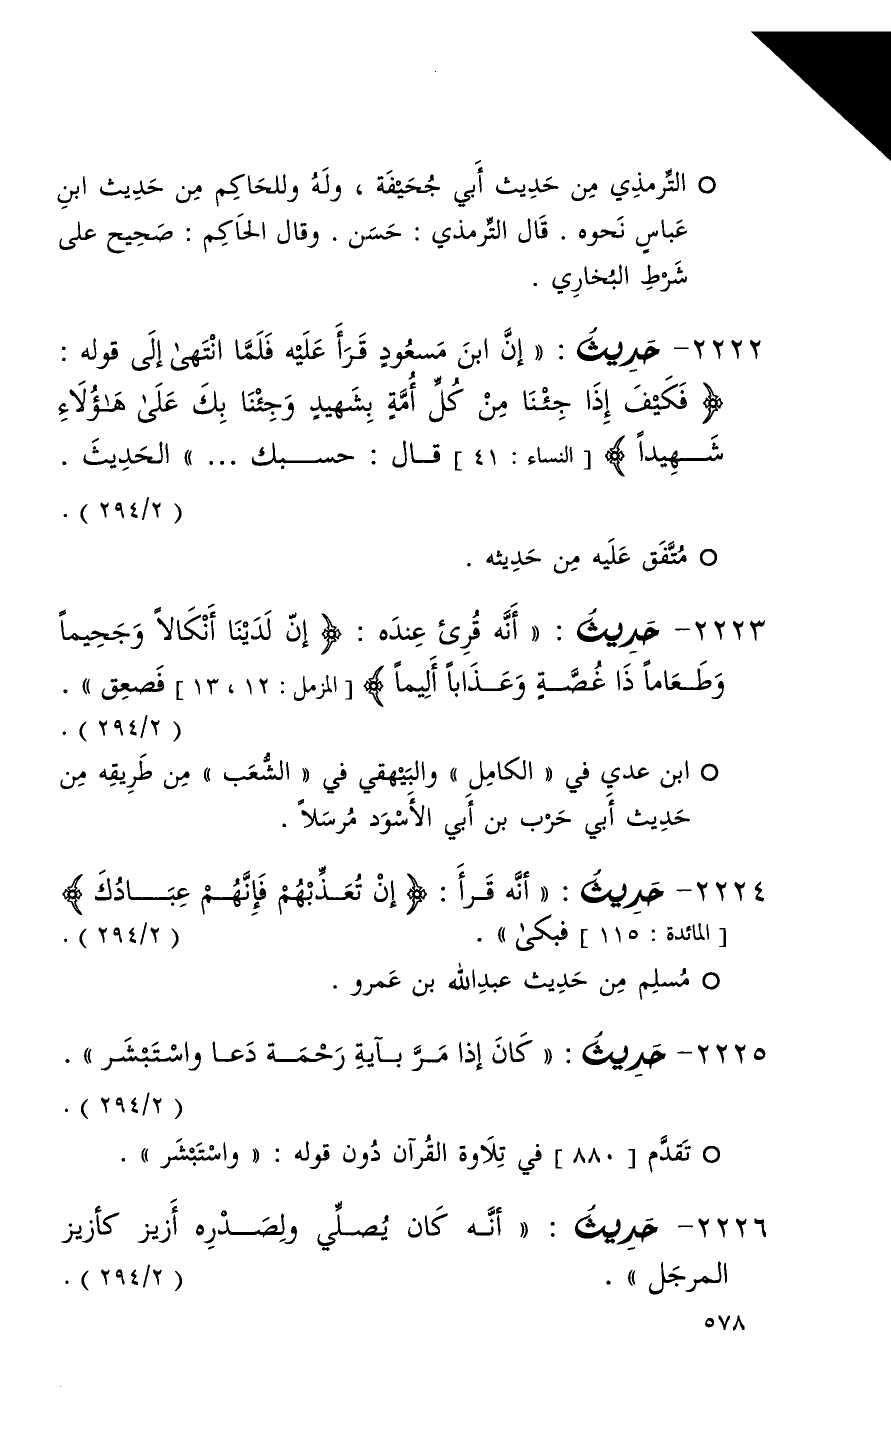 ○ التِّرمذِي مِن حَدِيث أَبي جُحَيْفَة ، ولَهُ وللحَاكِم مِن حَدِيث ابنِ
عَباسٍ نَحوه . قَال التِّرمذي : حَسَن . وقال الحَاكِم : صَحِيح على
شَرْطِ البُخارِي .
٢٢٢٢- حَدِيثُ : « إنَّ ابنَ مَسعُودٍ قَرَأَ عَلَيْه فَلَمَّا انْتَهىٰ إلَى قوله :
﴿ فَكَيْفَ إِذَا جِئْنَا مِنْ كُلِّ أُمَّةٍ بِشَهيدٍ وَجِئْنَا بِكَ عَلَىٰ هَـٰؤُلَاءِ
شَـــهِيداً ﴾ [ النساء : ٤١ ] قــال : حســـبك ... » الحَدِيثَ .
( ٢٩٤/٢ ) .
○ مُتَّفَق عَلَيه مِن حَدِيثه .
٢٢٢٣- حَدِيثُ : « أَنَّه قُرِئ عِندَه : ﴿ إنّ لَدَيْنَا أَنْكَالاً وَجَحِيماً
وَطَـعَاماً ذَا غُصَّــةٍ وَعَــذَاباً أَلِيماً ﴾ [ المزمل : ١٢ ، ١٣ ] فَصعِق » .
( ٢٩٤/٢ ) .
○ ابن عدي في « الكامِل » والبَيْهقي في « الشُّعَب » مِن طَرِيقِه مِن
حَدِيث أَبي حَرْب بن أَبي الأَسْوَد مُرسَلاً .
٢٢٢٤- حَدِيثُ : « أنَّه قَـرأَ : ﴿ إنْ تُعَـذِّبْهُمْ فَإِنَّهُـمْ عِبَـــادُكَ ﴾
[ المائدة : ١١٥ ] فبكىٰ » . ( ٢٩٤/٢ ) .
○ مُسلِم مِن حَدِيث عبدِالله بن عَمرو .
٢٢٢٥- حَدِيثُ : « كَانَ إذا مَـرَّ بـآيةِ رَحْمَــة دَعـا واسْتَبْشَـر » .
( ٢٩٤/٢ ) .
○ تَقدَّم [ ٨٨٠ ] في تِلَاوة القُرآن دُون قوله : « واسْتَبْشَر » .
٢٢٢٦- حَدِيثُ : « أنَّــه كَان يُصـلِّي ولِصَـــدْرِه أَزيز كأزيز
المرجَل » . ( ٢٩٤/٢ ) .
٥٧٨